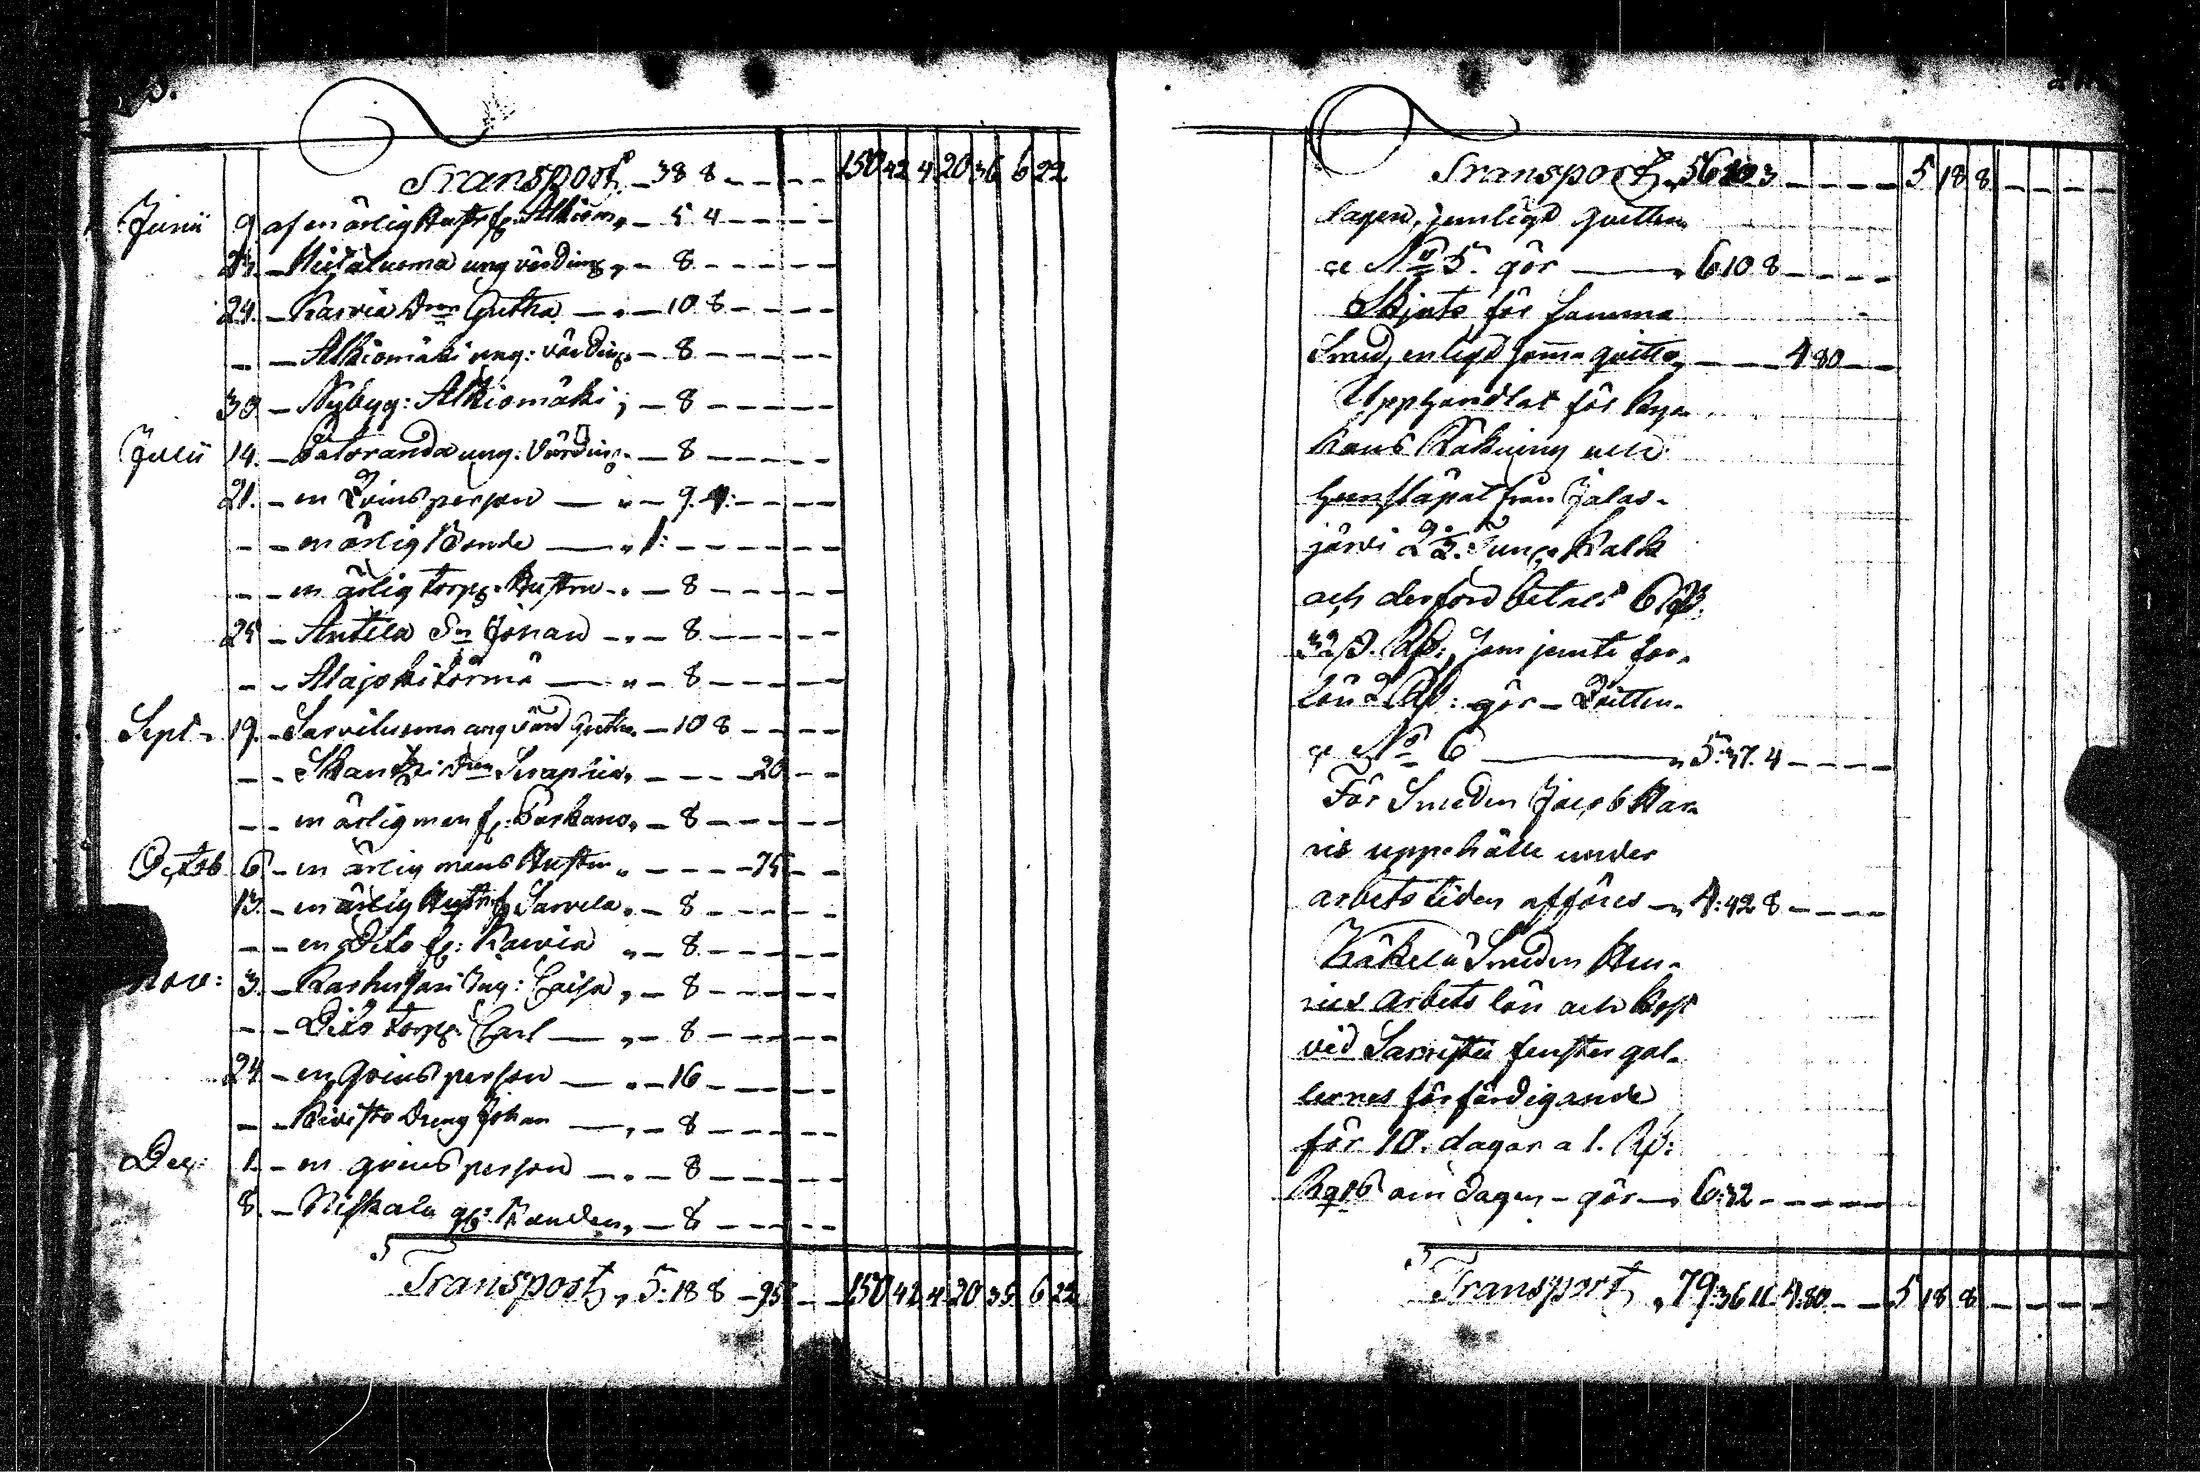 Transport - 38 8 - - - 150 42 4 20 36 6 22
Junii 9 af en ärlig Hustr fr. Alkiom, - 5 4 - - -
- Hietaluoma ung värding, - 8 - - -
24. - Karvia Drn Gretha - - 10 8 - - -
- - Alkiomäki ung: värding, - 8 - - -
30. - Nybyg: Alkiomäki, - 8 - - -
Julii 14. - Patoranda ung: Värding - 8 - - -
21. - en Qvins person - - 9. 4: - - -
- - en ärlig Bonde - 1: - - -
- - en ärlig torps. Hustru - - 8 - - -
25 - Antila Sn Johan - - 8 - - -
- - Alajoki - - 8 - - -
Sept - 19. - Sarviluoma ung värd Gretha - 10 8 - - -
- - Skantzi Drn Seraphia, - - - 20 - -
- - en ärlig man fr: Parkano, - 8 - - -
Octob 6 - en ärlig mans Hustru - - - - 75 - -
13. - en ärlig Hustr fr Sarvela, - 8 - - -
- - en Dito fr: Karvia - 8 - - -
Nov: 3. - Karhusari Ing: Caisa, - 8 - - -
- - Dito torps. Carl - - 8 - - -
24 - en qvins person - - 16 - - -
- - Kivisto Dreng Johan - - 8 - - -
Dec: 1. - en qvins person - - 8 - - -
8. - Niskala - 8 - - -
Transport, 5: 18 8 - 95 - - 150 42 4 20 36 6 22
Transport, 56 10 3 - - - 5 18 8 - - -
lagen, jemligt qvitten-
ce No 5. gör - 6 10 8 - - -
Skjuts för samma
Smed, enligt samma qvitto, - - - 4 80 - -
Upphandlat för Kyr-
kans Räkning och
hemsläpat från Jalas-
järvi 2 Kalk
och derföre betalt 6
32 s. Rb: som jemte for-
lön 2 Rb: gör - Qvitten-
ce No 6 - 5: 37. 4 - - -
För Smeden Jacob Kar-
vis uppehälle under
arbetstiden afföres - 4: 42 8 - - -
Käkelä Smeden Hen-
rics arbets lön och kost
vid Sacristie fenster gal-
lernes förfärdigande
för 10. dagar a 1. Rb:
om dagen - gör - 6: 32 - - -
Transport, 79: 36 11. 4: 80 - - 5 18 8 - - -